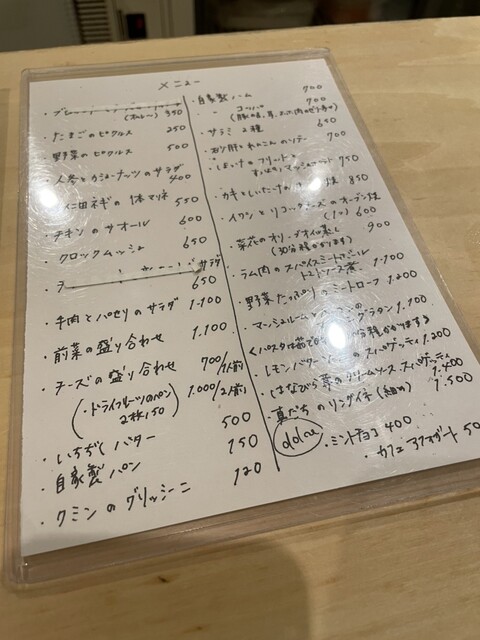 メニュー
(ハーフ) 350
・たまごのピクルス 250
・野菜のピクルス 500
・人参とカシューナッツのサラダ 400
・下仁田ネギの1本マリネ 550
・チキンのサオール 600
・クロックムッシュ 650
サラダ 650
・牛肉とパセリのサラダ 1.100
・前菜の盛り合わせ 1.100
・チーズの盛り合わせ 700/1人前
1.000/2人前
(・ドライフルーツのパン 2枚 150)
・いちぢくバター 500
・自家製パン 150
・クミンのグリッシーニ 120
・自家製ハム 900
・〃 コッパ 900
・サラミ2種 650
・砂肝とれんこんのソテー 700
マッシュポテト 750
・カキとしいたけの 焼 850
・イワシとリコッタチーズのオーブン焼 (1コ) 600
・菜花のオリーブオイル蒸し 900
(30分程かかります)
・ラム肉のスパイスミートボール トマトソース煮 1.100
・野菜たっぷりのミートローフ 1.200
・マッシュルームと グラタン 1.100
・レモンバター のスパゲッティ 1.200
・はなびら茸のクリームソーススパゲッティ 1.400
・真だちのリングイネ(細め) 1.500
dolce
・ミントチョコ 400
・カフェアフォガート 50